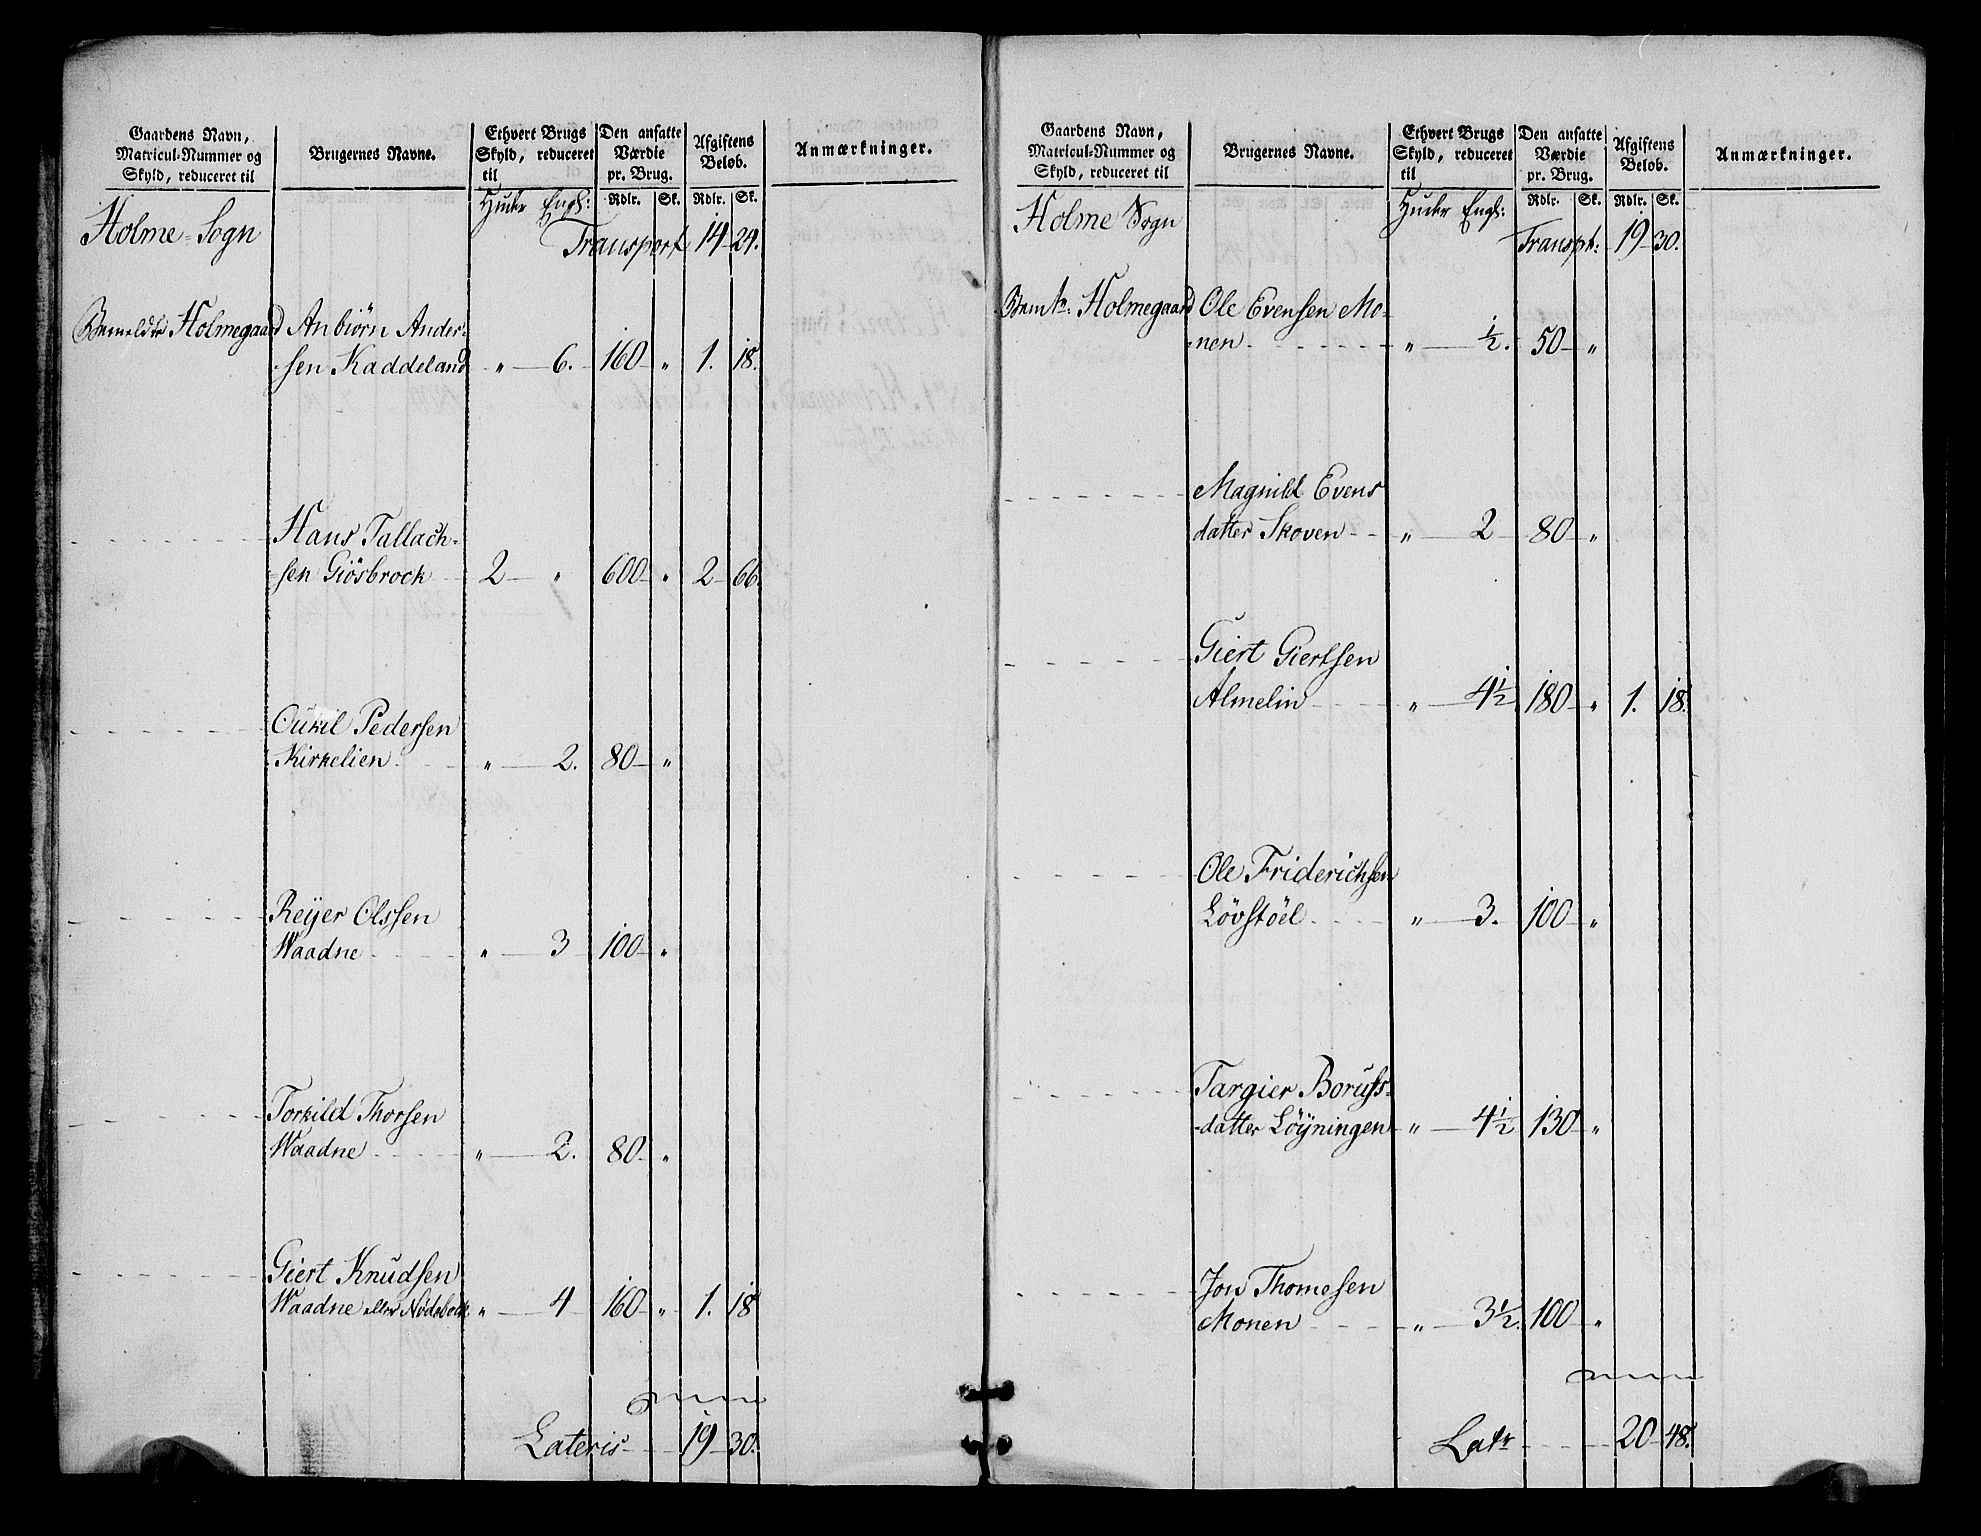 Gaardens Navn,
Matricul-Nummer og
Skyld, reduceret til
Brugernes Navne.
Ethvert Brugs
Skyld, reduceret
til
Huder Engl:
Den ansatte
Værdie
pr. Brug.
Rdlr. Sk.
Afgiftens
Beløb.
Rdlr. Sk.
Anmærkninger.
Holme-Sogn
Transport 14 24.
Bemeldte Holmegaard Anbiørn Ander-
sen Kaddeland " 6. 160 " 1. 18.
Hans Tallach-
sen Giösbrock 2 " 600 " 2 66.
Oukil Pedersen
Kirkelien " 2. 80 "
Reÿer Olssen
Waadne " 3 100 "
Torkild Thorsen
Waadne " 2. 80 "
Giert Knudsen
Waadne eller Nødebock " 4 160 " 1. 18
Lateris 19 30.
Gaardens Navn,
Matricul-Nummer og
Skyld, reduceret til
Brugernes Navne.
Ethvert Brugs
Skyld, reduceret
til
Huder Engl:
Den ansatte
Værdie
pr. Brug.
Rdlr. Sk.
Afgiftens
Beløb.
Rdlr. Sk.
Anmærkninger.
Holme Sogn
Transpt: 19 30.
Bemte. Holmegaard Ole Evensen Mo-
nen " ½. 50 "
Magnild Evens
datter Skoven " 2 80 "
Giert Giertsen
Almelin " 4½ 180 " 1. 18.
Ole Friderichsen
Lövstöel " 3. 100 "
Targier Borufs-
datter Löÿningen " 4½ 130 "
Jon Thomesen
Monen " 3½. 100 "
Latr 20 48.